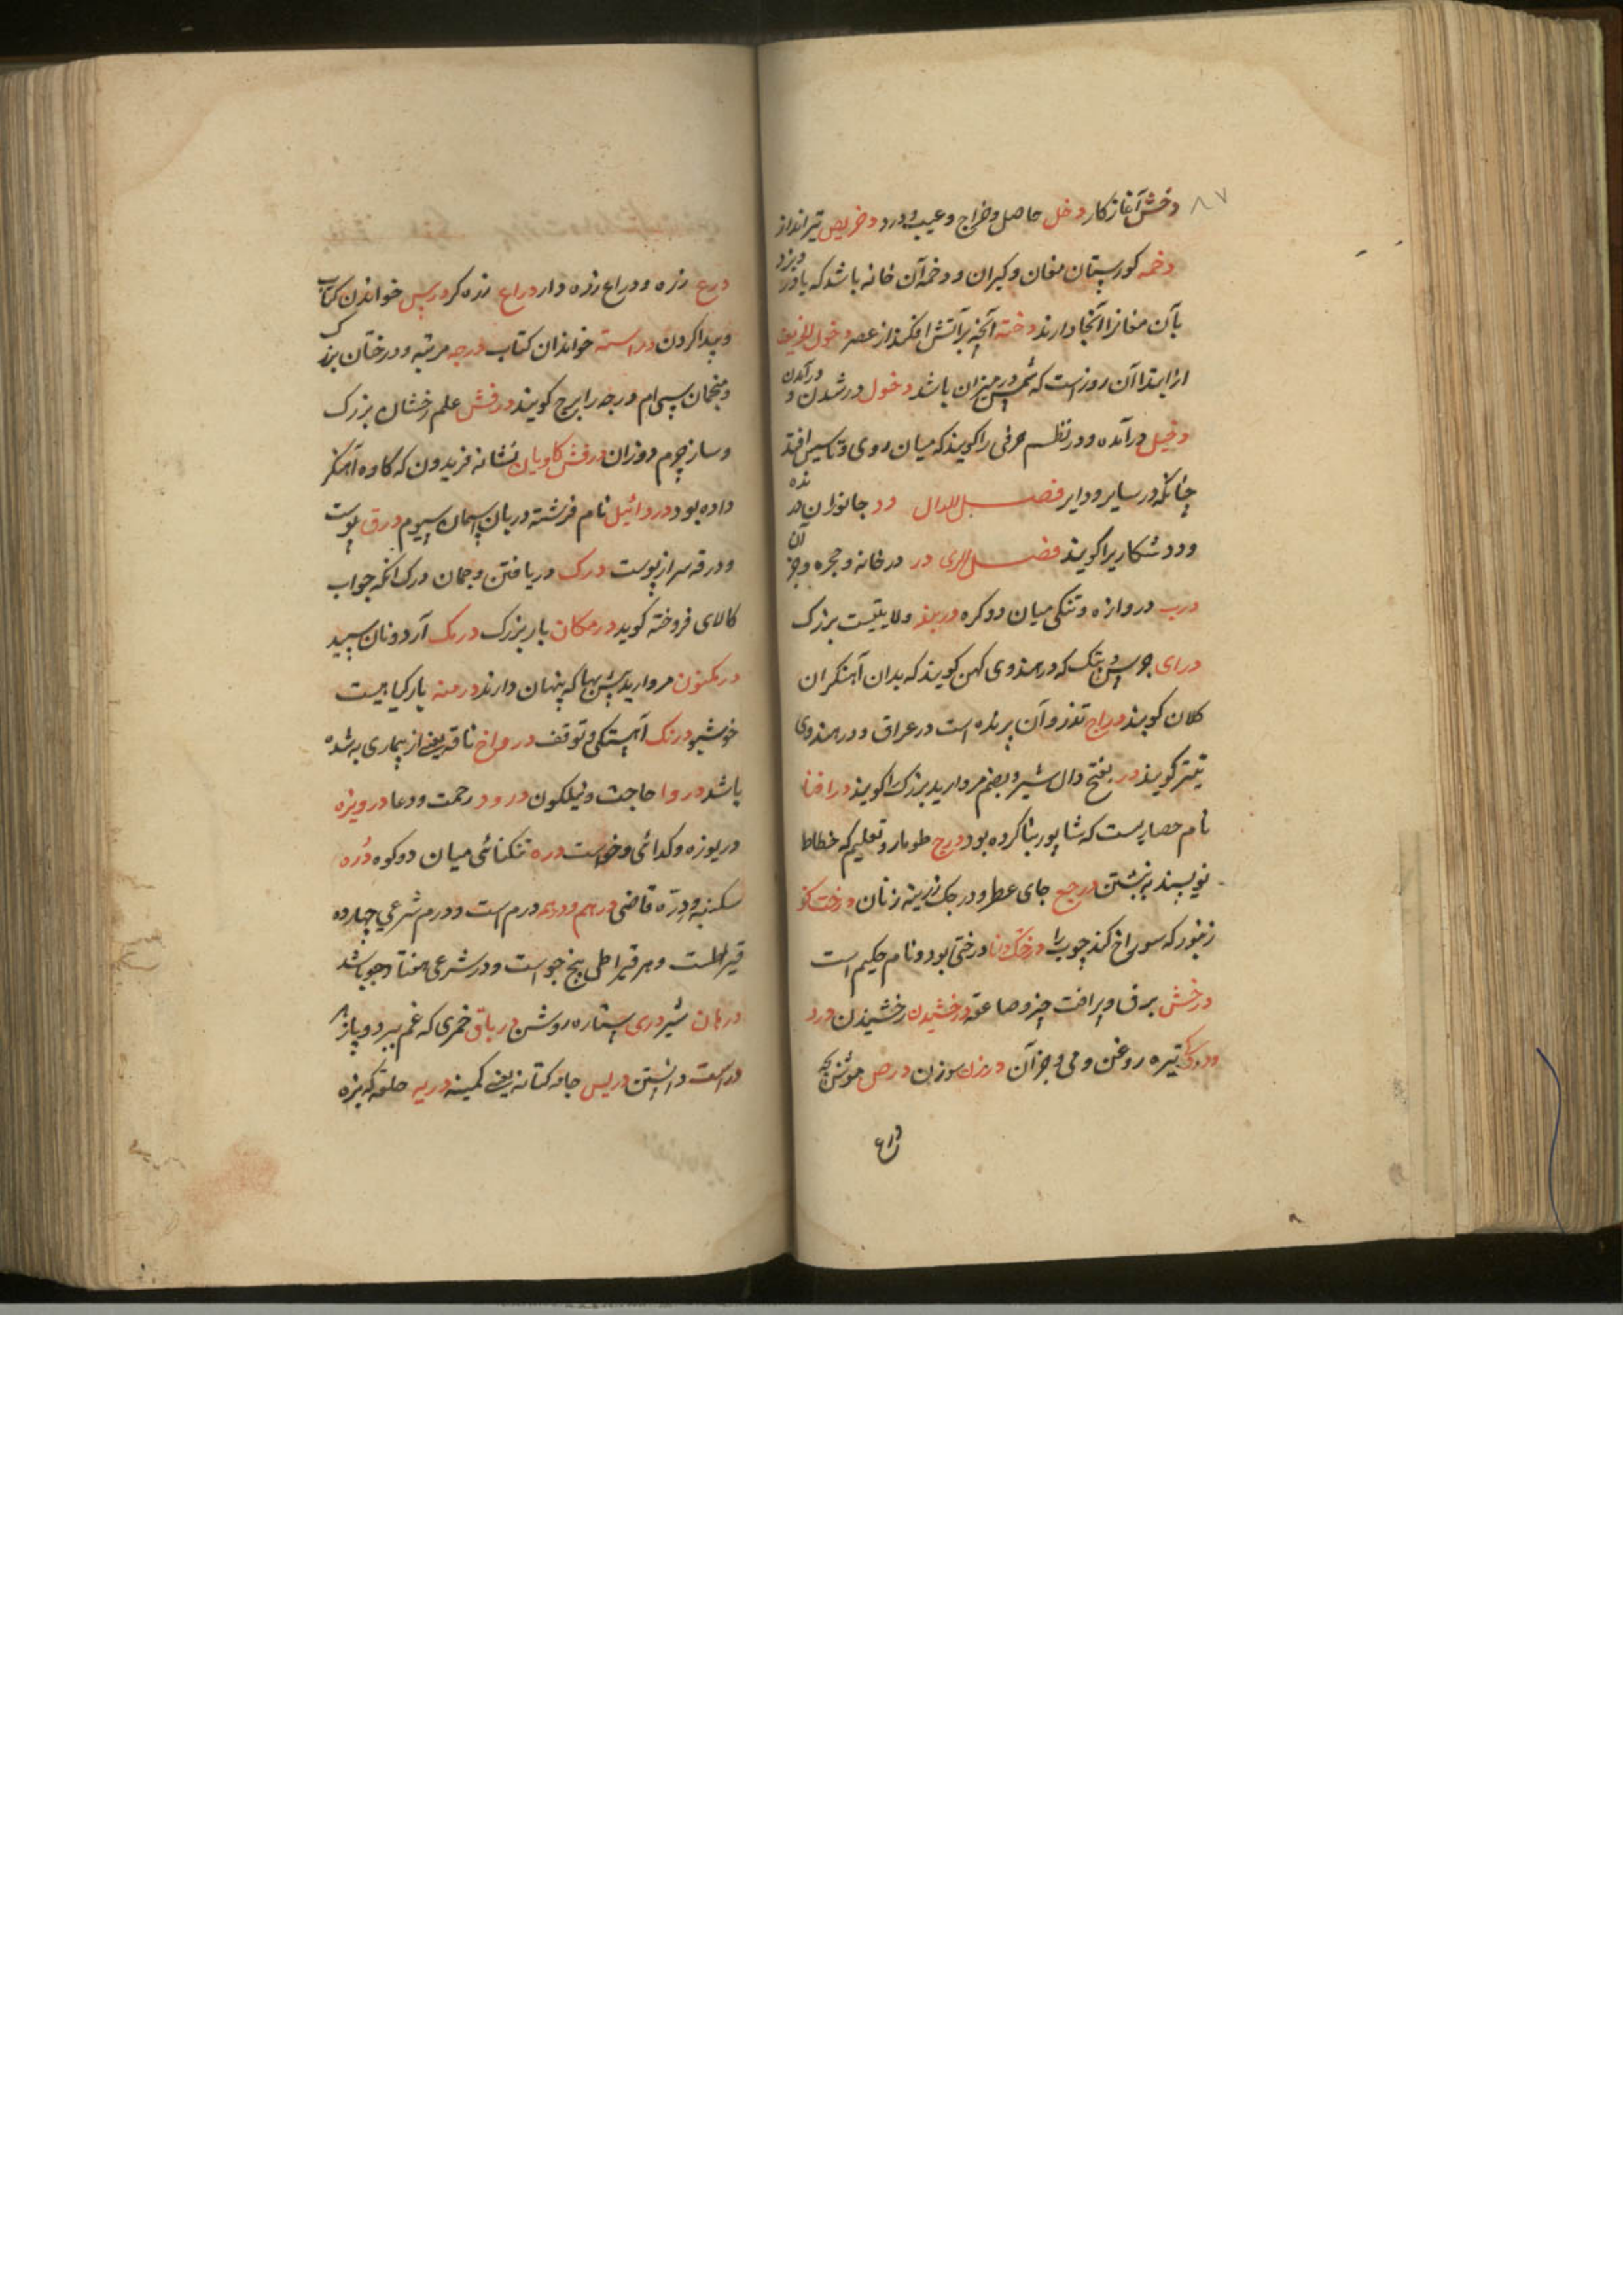 ۸۷
دخش آغاز کار دخل حاصل و خراج و عیب و درد دخریص تیرانداز
دخمه کورستان مغان و کبران و دخمه آن خانه باشد که باد
بآن مغانرا آنجا دارند دخنه آنچه بر آتش افکنند از عصر دخول
از ابتدا آن روزست که شمس در میزان باشد دخول در شدن و درآمدن
دخیل درآمده و در نظم حرفی را کویند که میان روی و تاسیس افتد
چنانکه در سایر و دایر فصل الدال دد جانوران درنده
و دد شکاریرا کویند فصل الری در در خانه و حجره و جز آن
درب دروازه و تنکی میان دو کره دربند ولایتیست بزرک
درای جرس و پتک که در هندوی کهن کویند که بدان آهنکران
کلان کویند دراج تذرو آن پرنده است در عراق و در هندوی
تیتر کویند در بفتح دال شیر و بضم مروارید بزرک را کویند درافتا
نام حصاریست که شاپور بنا کرده بود درج طومار و تعلیم که خطاط
نویسند به نبشتن درجع جای عطر و درجک زرینه زنان درخت
زنبور که سوراخ کند چوب را درخت دانا درختی بود و نام حکیم است
درخش برق و پر افت چیز و صاعقه درخشیدن رخشیدن درد
و دردی تیره روغن و می و جز آن درزن سوزن درص موش بچه
دراع
درع زره و دراع زره دار دراع زره کر درس خواندن کتاب
و پیدا کردن دراسته خواندان کتاب درجه مرتبه و درختان بزرک
و منجمان سی ام درجه را برج کویند درفش علم رخشان بزرک
و ساز چرم دوزان درفش کاویان نشانه فریدون که کاوه آهنکر
داده بود دروائیل نام فرشته دربان آسمان سیوم درق پوست
و درقه سر از پوست درک دریافتن و جمان درک آنکه جواب
کالای فروخته کوید درمکان بار بزرک درمک آرد و نان سپید
درمکنون مروارید بیش بها که پنهان دارند درمنه یار کیاهیست
خوشبو درنک آهستکی و توقف درواخ ناقه یعنی از بیماری به شده
باشد دروا حاجت و نیلکون درود رحمت و دعا درویزه
دریوزه و کدائی و خواست دره تنکنائی میان دو کوه دره
سکنبه و درّه قاضی درهم و درم درم است و درم شرعی چهارده
قیراطست و هر قیراطی پنج جو است و در شرعی هفتاد جو باشد
درهان شیر دری ستاره روشن دریاق خمری که غم ببرد و پازهر
دراست دانستن دریس جامه کتانه یعنی کمینه دریه حلقه که بزه